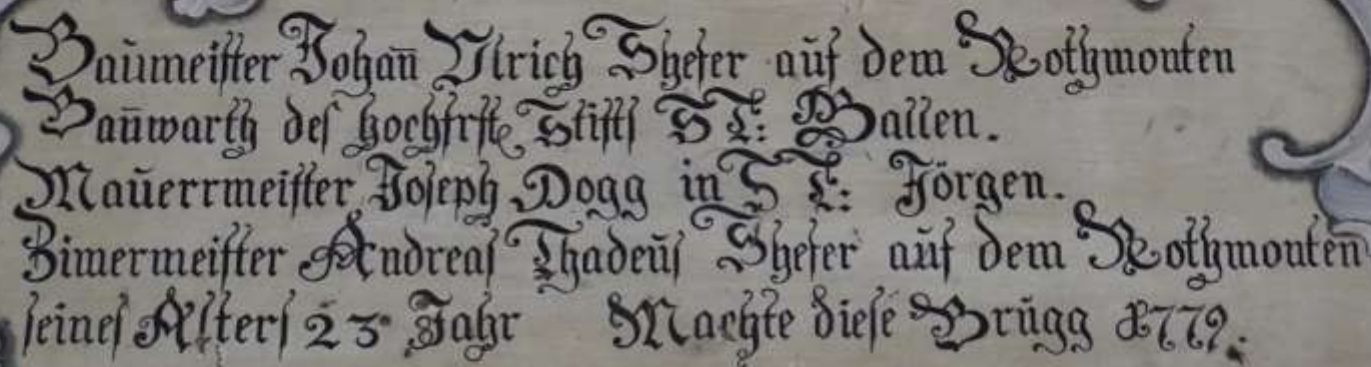 Baůmeiſter Johan̄ Ulrich Shefer aůf dem Rothmonten
Baůwarth deſ hochfrſtl Stiftſ ST: Gallen.
Maůerrmeiſter Joſeph Dogg in ST: Jörgen.
Zimermeiſter Andreaſ Thadeůſ Shefer aůf dem Rothmonten
ſeineſ Alterſ 23 Jahr Machte dieſe Brůgg 1779.